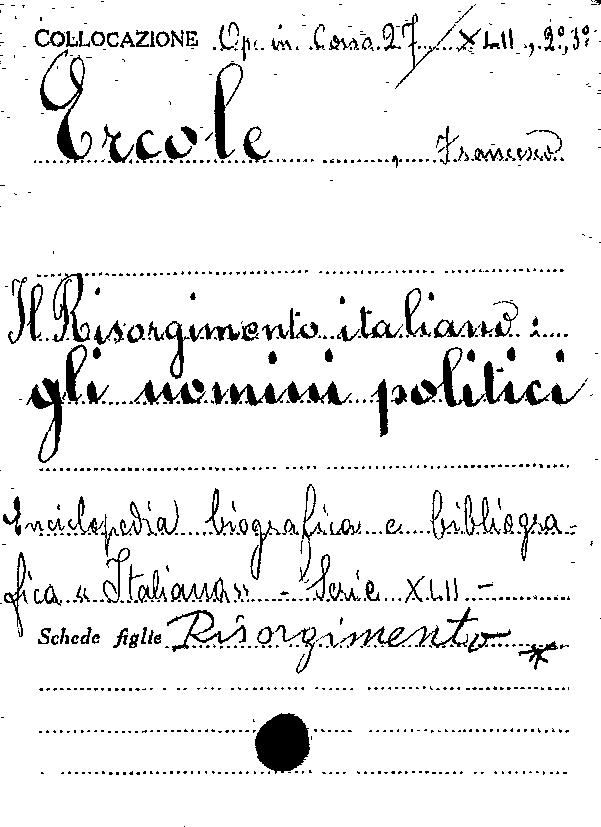 COLLOCAZIONE Op. in Corso 27/XLII, 2º, 3º
Ercole, Francesco
Il Risorgimento italiano:
gli uomini politici
Enciclopedia biografica e bibliogra-
fica « Italiana » - Serie XLII -
Schede figlie Risorgimento *